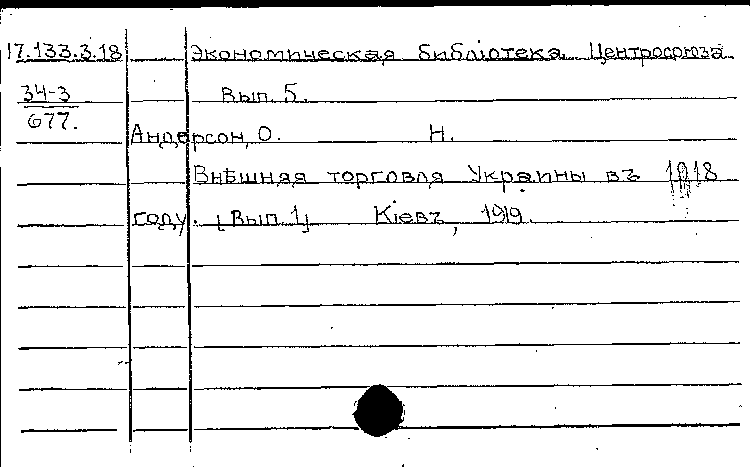 17.133.3.18 Экономическая библіотека Центросоюза
34-3 Вып. 5.
677.
Андерсон, О. Н.
Внѣшняя торговля Украины въ 1918
году. [Вып. 1] Кіевъ, 1919.